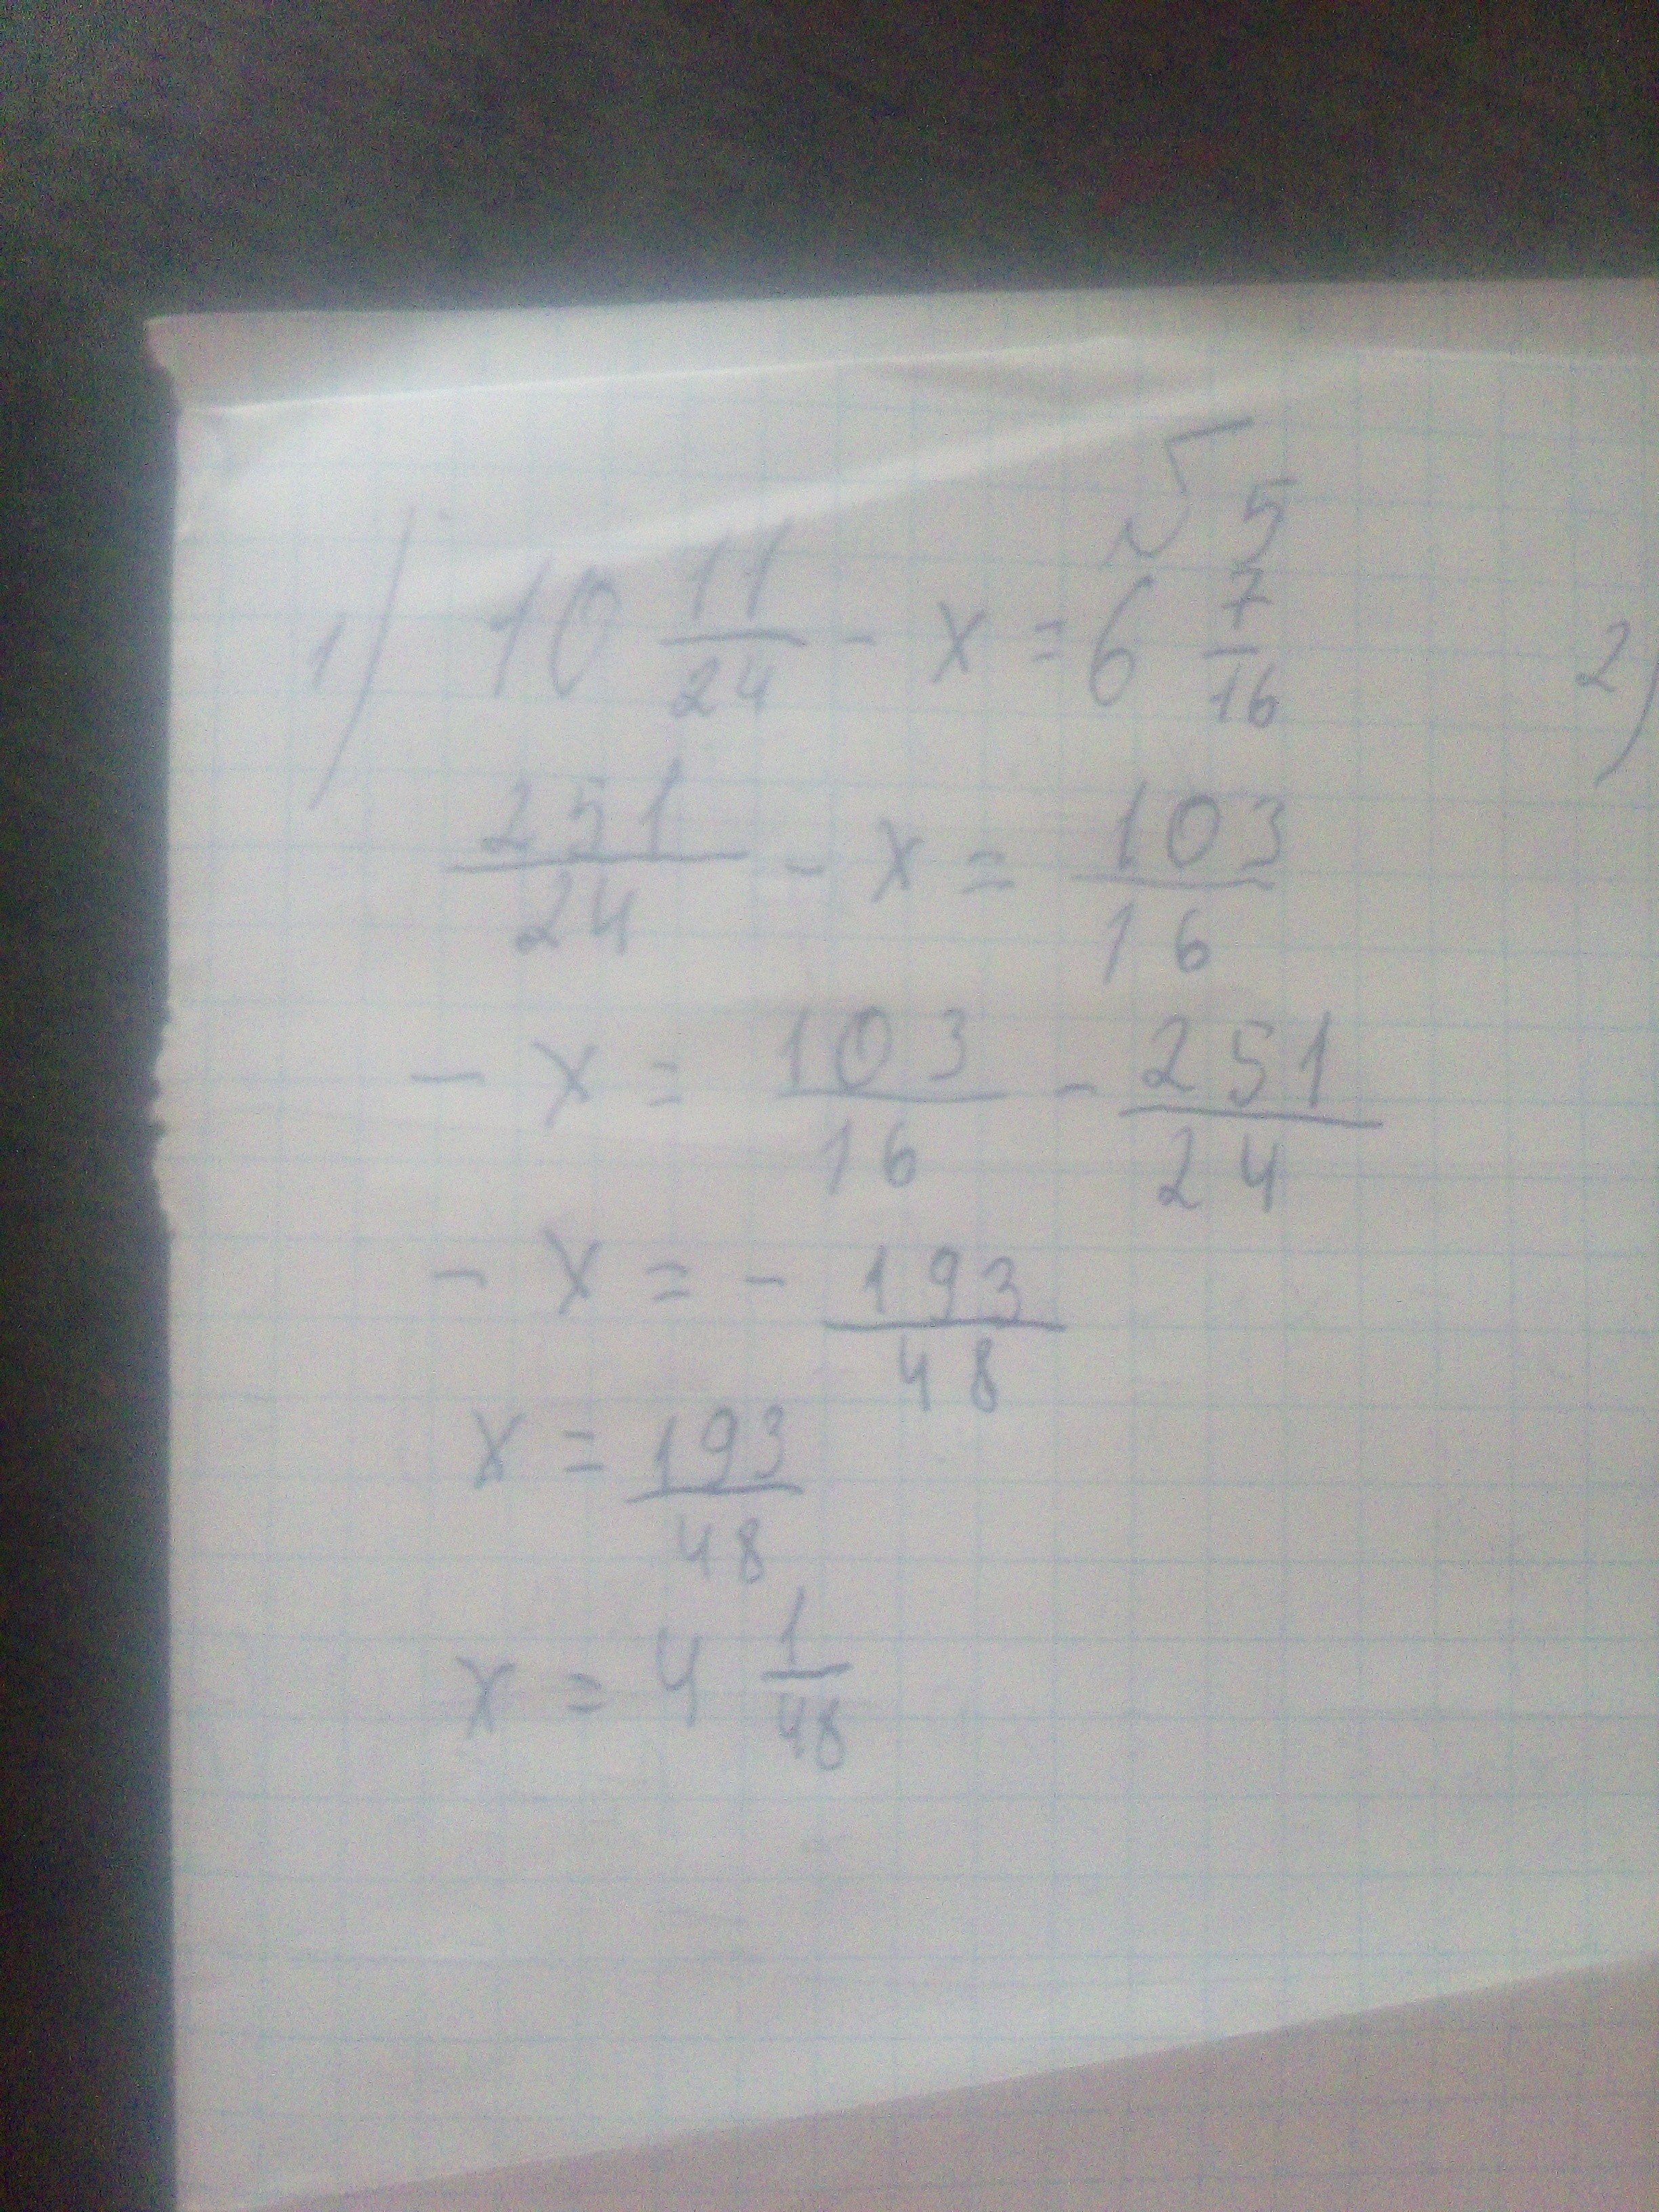 √5 5
1) 10 11/24 - x = 6 7/16 2)
251/24 - x = 103/16
- x = 103/16 - 251/24
- x = - 193/48
x = 193/48
x = 4 1/48